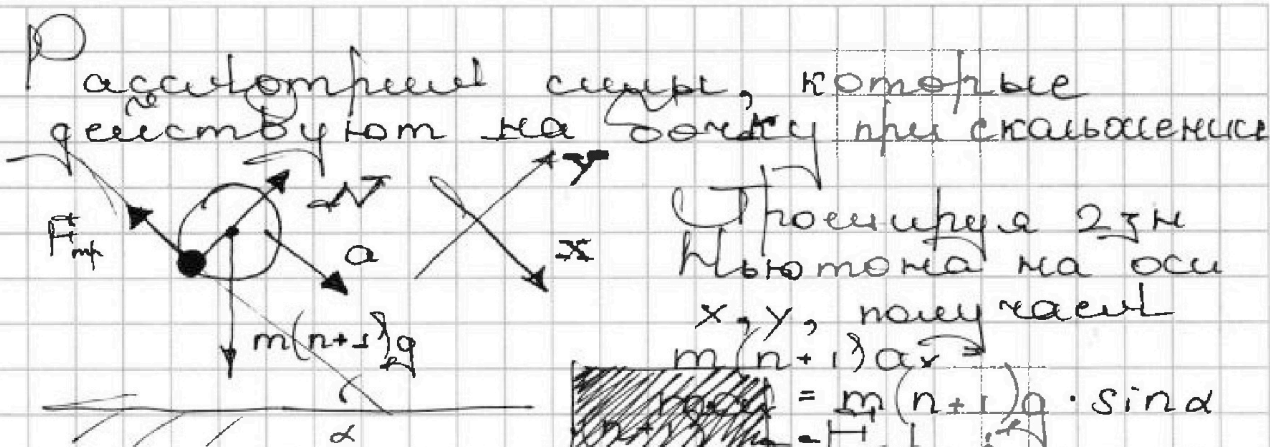 Рассмотрим силы, которые
действуют на бочку при скольжении
Y
N
Fтр
a
x
m(n+1)g
α
Проецируя 2 зн
Ньютона на оси
x, y, получаем
m(n+1)ax =
= m(n+1)g · sinα